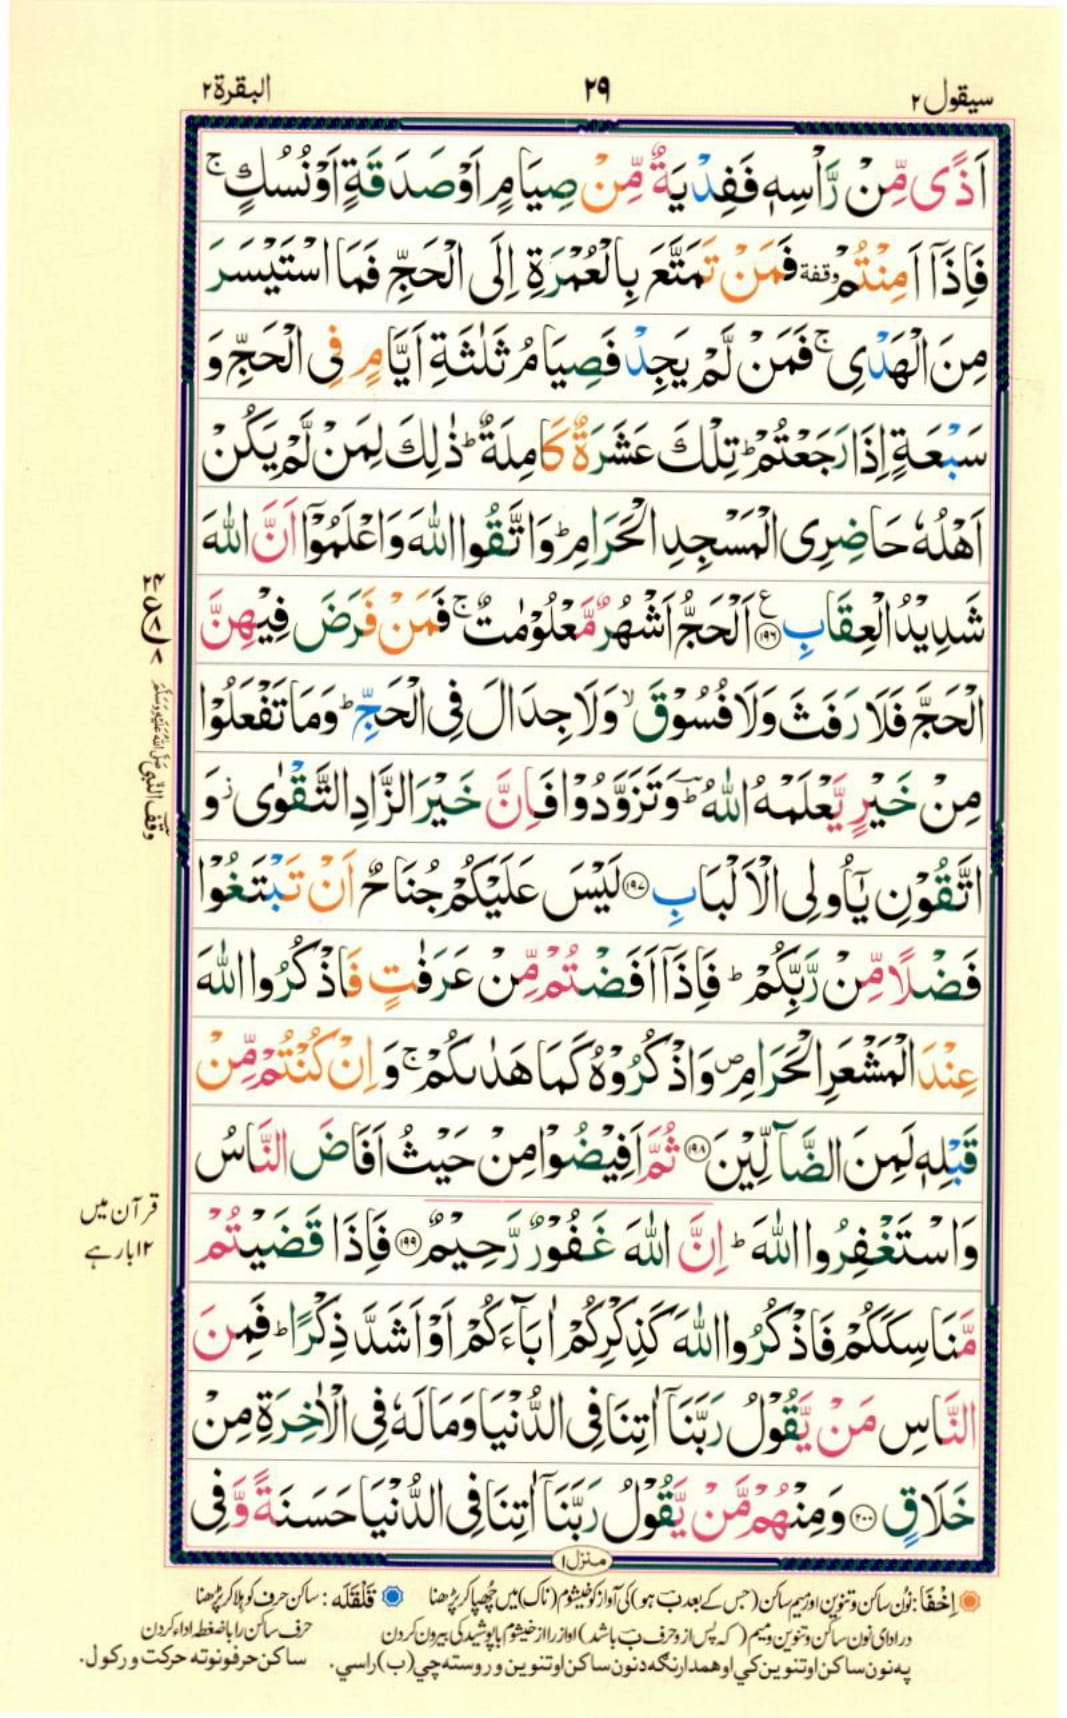 سيقول ٢
٢٩
البقرة ٢
اَذًى مِّنْ رَّاْسِهٖ فَفِدْيَةٌ مِّنْ صِيَامٍ اَوْ صَدَقَةٍ اَوْ نُسُكٍ ۚ
فَاِذَاۤ اَمِنْتُمْ وقفة فَمَنْ تَمَتَّعَ بِالْعُمْرَةِ اِلَى الْحَجِّ فَمَا اسْتَيْسَرَ
مِنَ الْهَدْيِ ۚ فَمَنْ لَّمْ يَجِدْ فَصِيَامُ ثَلٰثَةِ اَيَّامٍ فِى الْحَجِّ وَ
سَبْعَةٍ اِذَا رَجَعْتُمْ ؕ تِلْكَ عَشَرَةٌ كَامِلَةٌ ؕ ذٰلِكَ لِمَنْ لَّمْ يَكُنْ
اَهْلُهٗ حَاضِرِى الْمَسْجِدِ الْحَرَامِ ؕ وَاتَّقُوا اللّٰهَ وَاعْلَمُوْۤا اَنَّ اللّٰهَ
شَدِيْدُ الْعِقَابِ ﴿۱۹۶﴾ ع اَلْحَجُّ اَشْهُرٌ مَّعْلُوْمٰتٌ ۚ فَمَنْ فَرَضَ فِيْهِنَّ
الْحَجَّ فَلَا رَفَثَ وَلَا فُسُوْقَ ۙ وَلَا جِدَالَ فِى الْحَجِّ ؕ وَمَا تَفْعَلُوْا
مِنْ خَيْرٍ يَّعْلَمْهُ اللّٰهُ ؕ وَتَزَوَّدُوْا فَاِنَّ خَيْرَ الزَّادِ التَّقْوٰى ز وَ
اتَّقُوْنِ يٰۤاُولِى الْاَلْبَابِ ﴿۱۹۷﴾ لَيْسَ عَلَيْكُمْ جُنَاحٌ اَنْ تَبْتَغُوْا
فَضْلًا مِّنْ رَّبِّكُمْ ؕ فَاِذَاۤ اَفَضْتُمْ مِّنْ عَرَفٰتٍ فَاذْكُرُوا اللّٰهَ
عِنْدَ الْمَشْعَرِ الْحَرَامِ ص وَاذْكُرُوْهُ كَمَا هَدٰىكُمْ ۚ وَاِنْ كُنْتُمْ مِّنْ
قَبْلِهٖ لَمِنَ الضَّآلِّيْنَ ﴿۱۹۸﴾ ثُمَّ اَفِيْضُوْا مِنْ حَيْثُ اَفَاضَ النَّاسُ
وَاسْتَغْفِرُوا اللّٰهَ ؕ اِنَّ اللّٰهَ غَفُوْرٌ رَّحِيْمٌ ﴿۱۹۹﴾ فَاِذَا قَضَيْتُمْ
مَّنَاسِكَكُمْ فَاذْكُرُوا اللّٰهَ كَذِكْرِكُمْ اٰبَآءَكُمْ اَوْ اَشَدَّ ذِكْرًا ؕ فَمِنَ
النَّاسِ مَنْ يَّقُوْلُ رَبَّنَاۤ اٰتِنَا فِى الدُّنْيَا وَمَا لَهٗ فِى الْاٰخِرَةِ مِنْ
خَلَاقٍ ﴿۲۰۰﴾ وَمِنْهُمْ مَّنْ يَّقُوْلُ رَبَّنَاۤ اٰتِنَا فِى الدُّنْيَا حَسَنَةً وَّفِى
منزل ١
٢٤
ع
٨
٨
وقف النبى صَلَّى اللهُ عَلَيْهِ وَسَلَّمَ
قرآن میں
۱۲ بار ہے
اِخْفَا: نُون ساکن و تنوین اور میم ساکن (جس کے بعد ب ہو) کی آواز کو خیشوم (ناک) میں چُھپا کر پڑھنا
قَلْقَلَه: ساکن حرف کو ہلا کر پڑھنا
در ادای نون ساکن و تنوین و میم (که پس از و حرف ب باشد) آواز را از خیشوم با پوشیدگی بیرون کردن
حرف ساکن را با ضغطه اداء کردن
په نون ساکن او تنوین کي او همدارنګه د نون ساکن او تنوین وروسته چي (ب) راسي.
ساکن حرفونو ته حرکت ورکول.